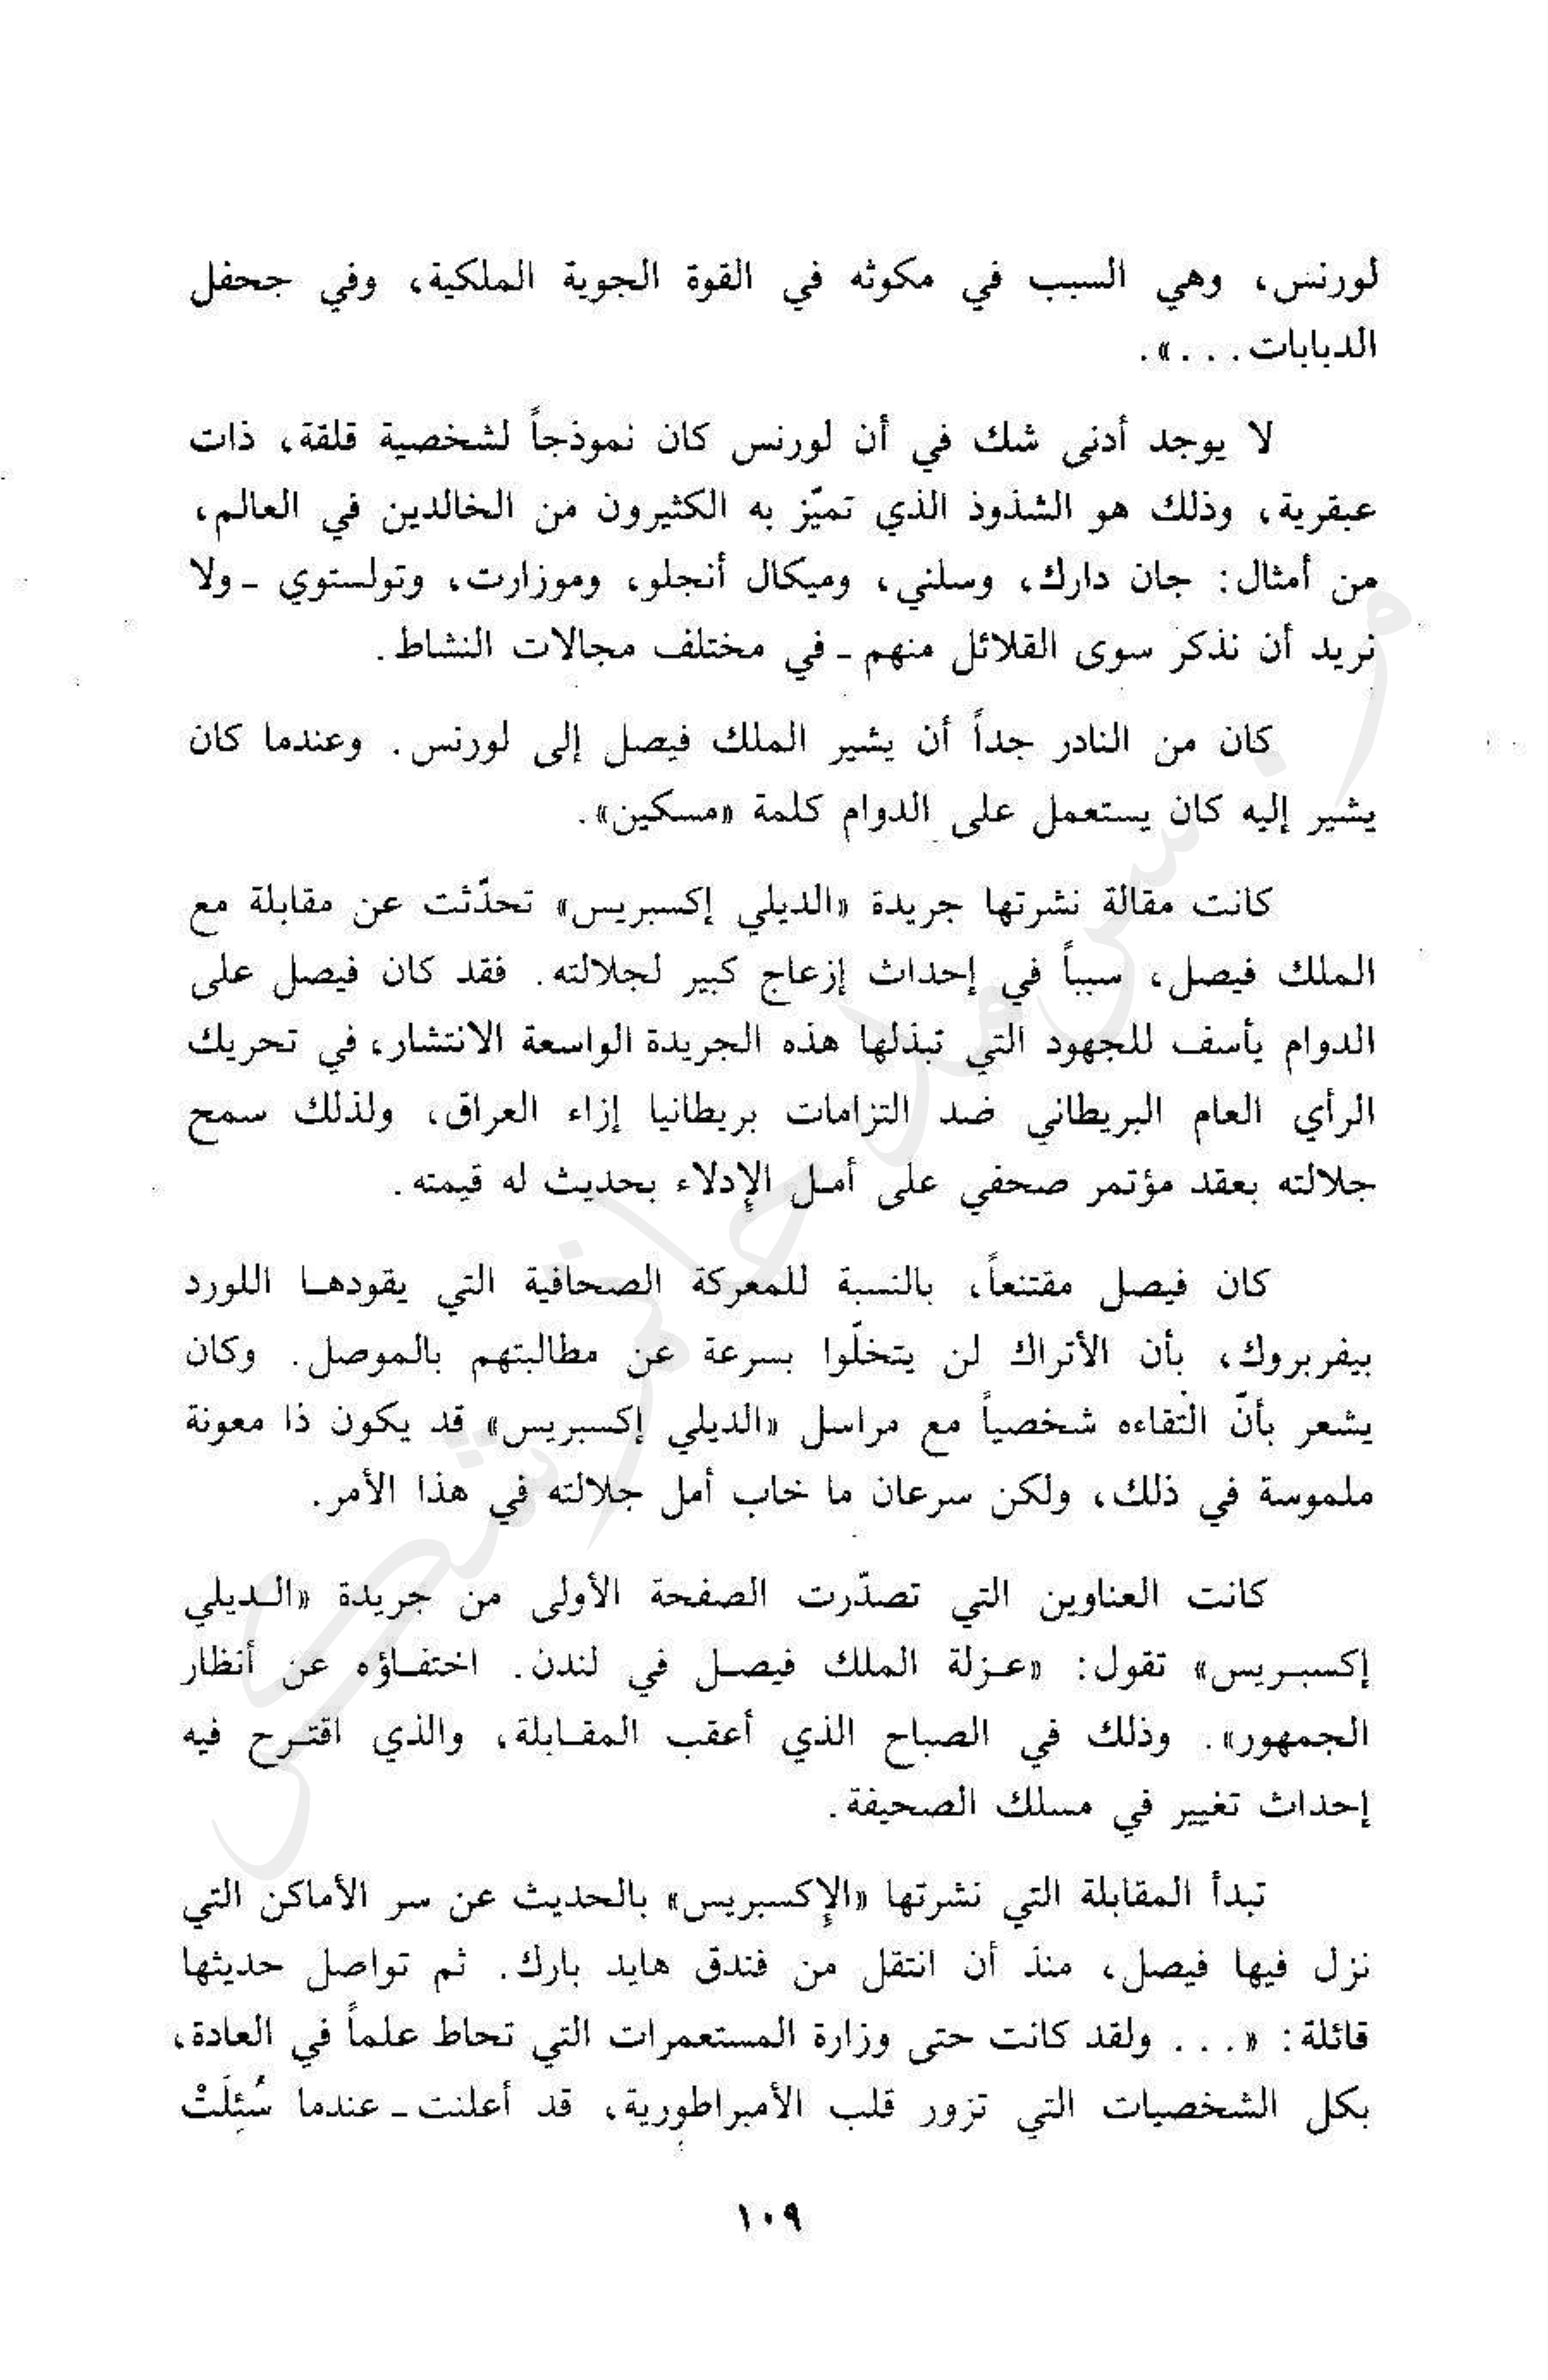 لورنس، وهي السبب في مكوثه في القوة الجوية الملكية، وفي جحفل
الدبابات...».
لا يوجد أدنى شك في أن لورنس كان نموذجاً لشخصية قلقة، ذات
عبقرية، وذلك هو الشذوذ الذي تميّز به الكثيرون من الخالدين في العالم،
من أمثال: جان دارك، وسلني، وميكال أنجلو، وموزارت، وتولستوي ـ ولا
نريد أن نذكر سوى القلائل منهم ـ في مختلف مجالات النشاط.
كان من النادر جداً أن يشير الملك فيصل إلى لورنس. وعندما كان
يشير إليه كان يستعمل على الدوام كلمة «مسكين».
كانت مقالة نشرتها جريدة «الديلي إكسبريس» تحدّثت عن مقابلة مع
الملك فيصل، سبباً في إحداث إزعاج كبير لجلالته. فقد كان فيصل على
الدوام يأسف للجهود التي تبذلها هذه الجريدة الواسعة الانتشار، في تحريك
الرأي العام البريطاني ضد التزامات بريطانيا إزاء العراق، ولذلك سمح
جلالته بعقد مؤتمر صحفي على أمل الإدلاء بحديث له قيمته.
كان فيصل مقتنعاً، بالنسبة للمعركة الصحافية التي يقودها اللورد
بيفربروك، بأن الأتراك لن يتخلّوا بسرعة عن مطالبتهم بالموصل. وكان
يشعر بأنّ التقاءه شخصياً مع مراسل «الديلي إكسبريس» قد يكون ذا معونة
ملموسة في ذلك، ولكن سرعان ما خاب أمل جلالته في هذا الأمر.
كانت العناوين التي تصدّرت الصفحة الأولى من جريدة «الـديلي
إكسبـريس» تقول: «عـزلة الملك فيصـل في لندن. اختفـاؤه عن أنظار
الجمهور». وذلك في الصباح الذي أعقب المقـابلة، والذي اقتـرح فيه
إحداث تغيير في مسلك الصحيفة.
تبدأ المقابلة التي نشرتها «الإكسبريس» بالحديث عن سر الأماكن التي
نزل فيها فيصل، منذ أن انتقل من فندق هايد بارك. ثم تواصل حديثها
قائلة: «... ولقد كانت حتى وزارة المستعمرات التي تحاط علماً في العادة،
بكل الشخصيات التي تزور قلب الأمبراطورية، قد أعلنت ـ عندما سُئِلَتْ
١٠٩